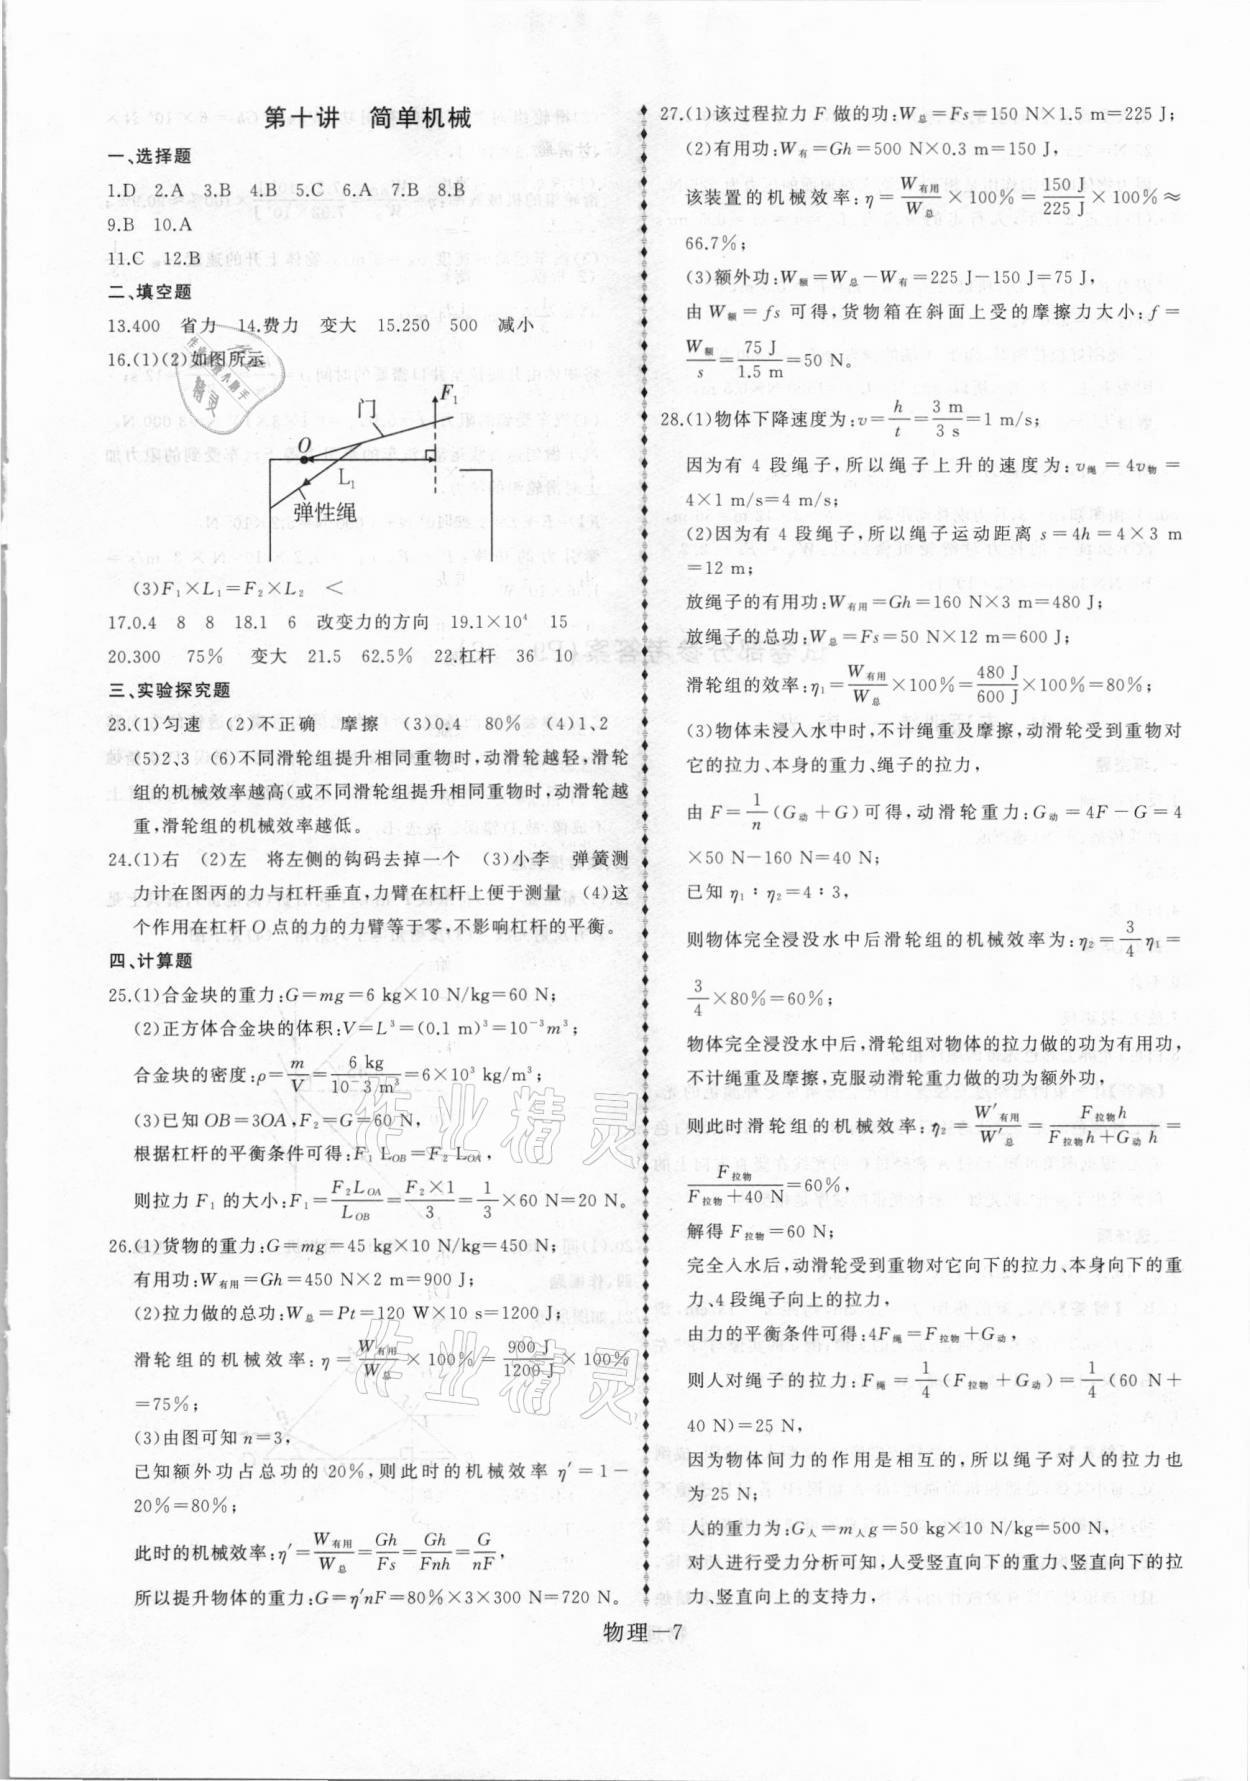 第十讲　简单机械
一、选择题
1.D　2.A　3.B　4.B　5.C　6.A　7.B　8.B
9.B　10.A
11.C　12.B
二、填空题
13.400　省力　14.费力　变大　15.250　500　减小
16.(1)(2)如图所示
门
F₁
O
L₁
弹性绳
(3)F₁×L₁=F₂×L₂　<
17.0.4　8　8　18.1　6　改变力的方向　19.1×10⁴　15
20.300　75%　变大　21.5　62.5%　22.杠杆　36　10
三、实验探究题
23.(1)匀速　(2)不正确　摩擦　(3)0.4　80%　(4)1、2
(5)2、3　(6)不同滑轮组提升相同重物时,动滑轮越轻,滑轮
组的机械效率越高(或不同滑轮组提升相同重物时,动滑轮越
重,滑轮组的机械效率越低。
24.(1)右　(2)左　将左侧的钩码去掉一个　(3)小李　弹簧测
力计在图丙的力与杠杆垂直,力臂在杠杆上便于测量　(4)这
个作用在杠杆 O 点的力的力臂等于零,不影响杠杆的平衡。
四、计算题
25.(1)合金块的重力:G=mg=6 kg×10 N/kg=60 N;
(2)正方体合金块的体积:V=L³=(0.1 m)³=10⁻³m³;
合金块的密度:ρ=m/V=6 kg/10−3 m³=6×10³ kg/m³;
(3)已知 OB=3OA,F₂=G=60 N,
根据杠杆的平衡条件可得:F₁ L_OB=F₂ L_OA,
则拉力 F₁ 的大小:F₁=F₂L_OA/L_OB=F₂×1/3=1/3×60 N=20 N。
26.(1)货物的重力:G=mg=45 kg×10 N/kg=450 N;
有用功:W有用=Gh=450 N×2 m=900 J;
(2)拉力做的总功:W总=Pt=120 W×10 s=1200 J;
滑轮组的机械效率:η=W有用/W总×100%=900 J/1200 J×100%
=75%;
(3)由图可知 n=3,
已知额外功占总功的 20%,则此时的机械效率 η′=1−
20%=80%;
此时的机械效率:η′=W有用/W总=Gh/Fs=Gh/Fnh=G/nF,
所以提升物体的重力:G=η′nF=80%×3×300 N=720 N。
27.(1)该过程拉力 F 做的功:W总=Fs=150 N×1.5 m=225 J;
(2)有用功:W有=Gh=500 N×0.3 m=150 J,
该装置的机械效率:η=W有用/W总×100%=150 J/225 J×100%≈
66.7%;
(3)额外功:W额=W总−W有=225 J−150 J=75 J,
由 W额=fs 可得,货物箱在斜面上受的摩擦力大小:f=
W额/s=75 J/1.5 m=50 N。
28.(1)物体下降速度为:v=h/t=3 m/3 s=1 m/s;
因为有 4 段绳子,所以绳子上升的速度为:v绳=4v物=
4×1 m/s=4 m/s;
(2)因为有 4 段绳子,所以绳子运动距离 s=4h=4×3 m
=12 m;
放绳子的有用功:W有用=Gh=160 N×3 m=480 J;
放绳子的总功:W总=Fs=50 N×12 m=600 J;
滑轮组的效率:η₁=W有用/W总×100%=480 J/600 J×100%=80%;
(3)物体未浸入水中时,不计绳重及摩擦,动滑轮受到重物对
它的拉力、本身的重力、绳子的拉力,
由 F=1/n(G动+G)可得,动滑轮重力:G动=4F−G=4
×50 N−160 N=40 N;
已知 η₁∶η₂=4∶3,
则物体完全浸没水中后滑轮组的机械效率为:η₂=3/4η₁=
3/4×80%=60%;
物体完全浸没水中后,滑轮组对物体的拉力做的功为有用功,
不计绳重及摩擦,克服动滑轮重力做的功为额外功,
则此时滑轮组的机械效率:η₂=W′有用/W′总=F拉物h/F拉物h+G动 h=
F拉物/F拉物+40 N=60%,
解得 F拉物=60 N;
完全入水后,动滑轮受到重物对它向下的拉力、本身向下的重
力、4 段绳子向上的拉力,
由力的平衡条件可得:4F绳=F拉物+G动,
则人对绳子的拉力:F绳=1/4(F拉物+G动)=1/4(60 N+
40 N)=25 N,
因为物体间力的作用是相互的,所以绳子对人的拉力也
为 25 N;
人的重力为:G人=m人g=50 kg×10 N/kg=500 N,
对人进行受力分析可知,人受竖直向下的重力、竖直向下的拉
力、竖直向上的支持力,
物理—7
作业精灵
作业精灵